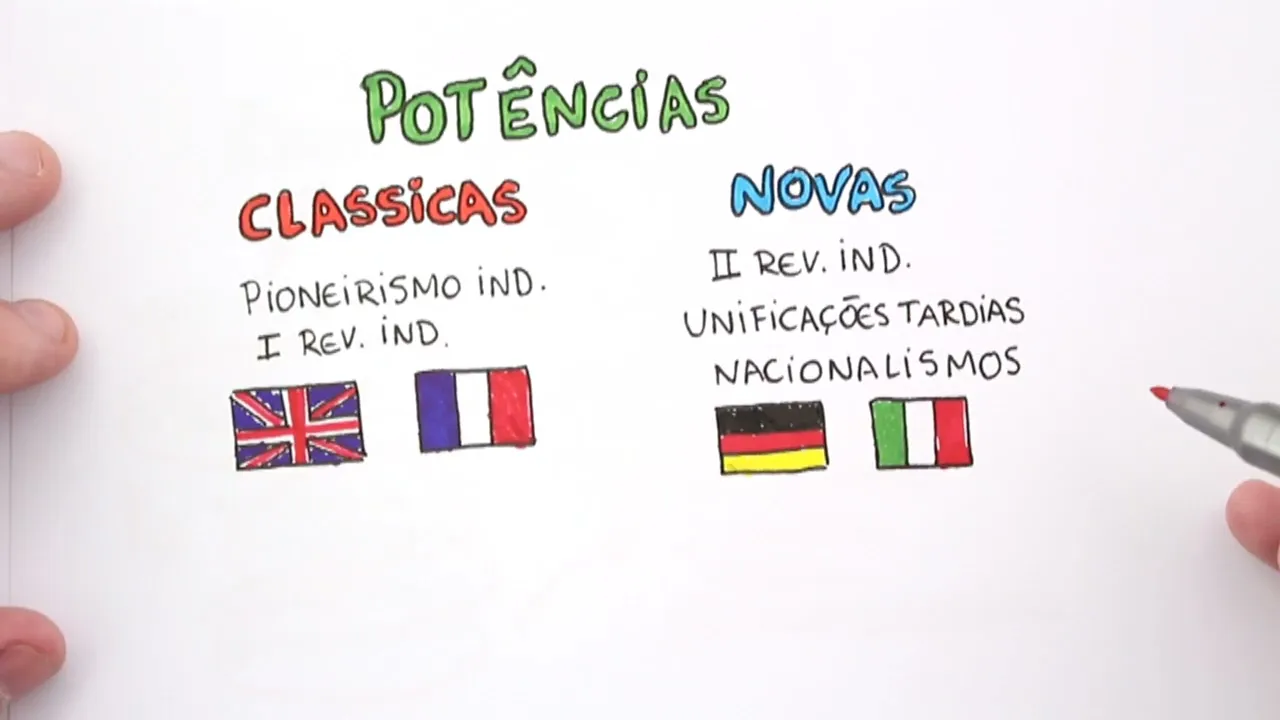 POTÊNCIAS
CLASSICAS
PIONEIRISMO IND.
I REV. IND.
NOVAS
II REV. IND.
UNIFICAÇÕES TARDIAS
NACIONALISMOS